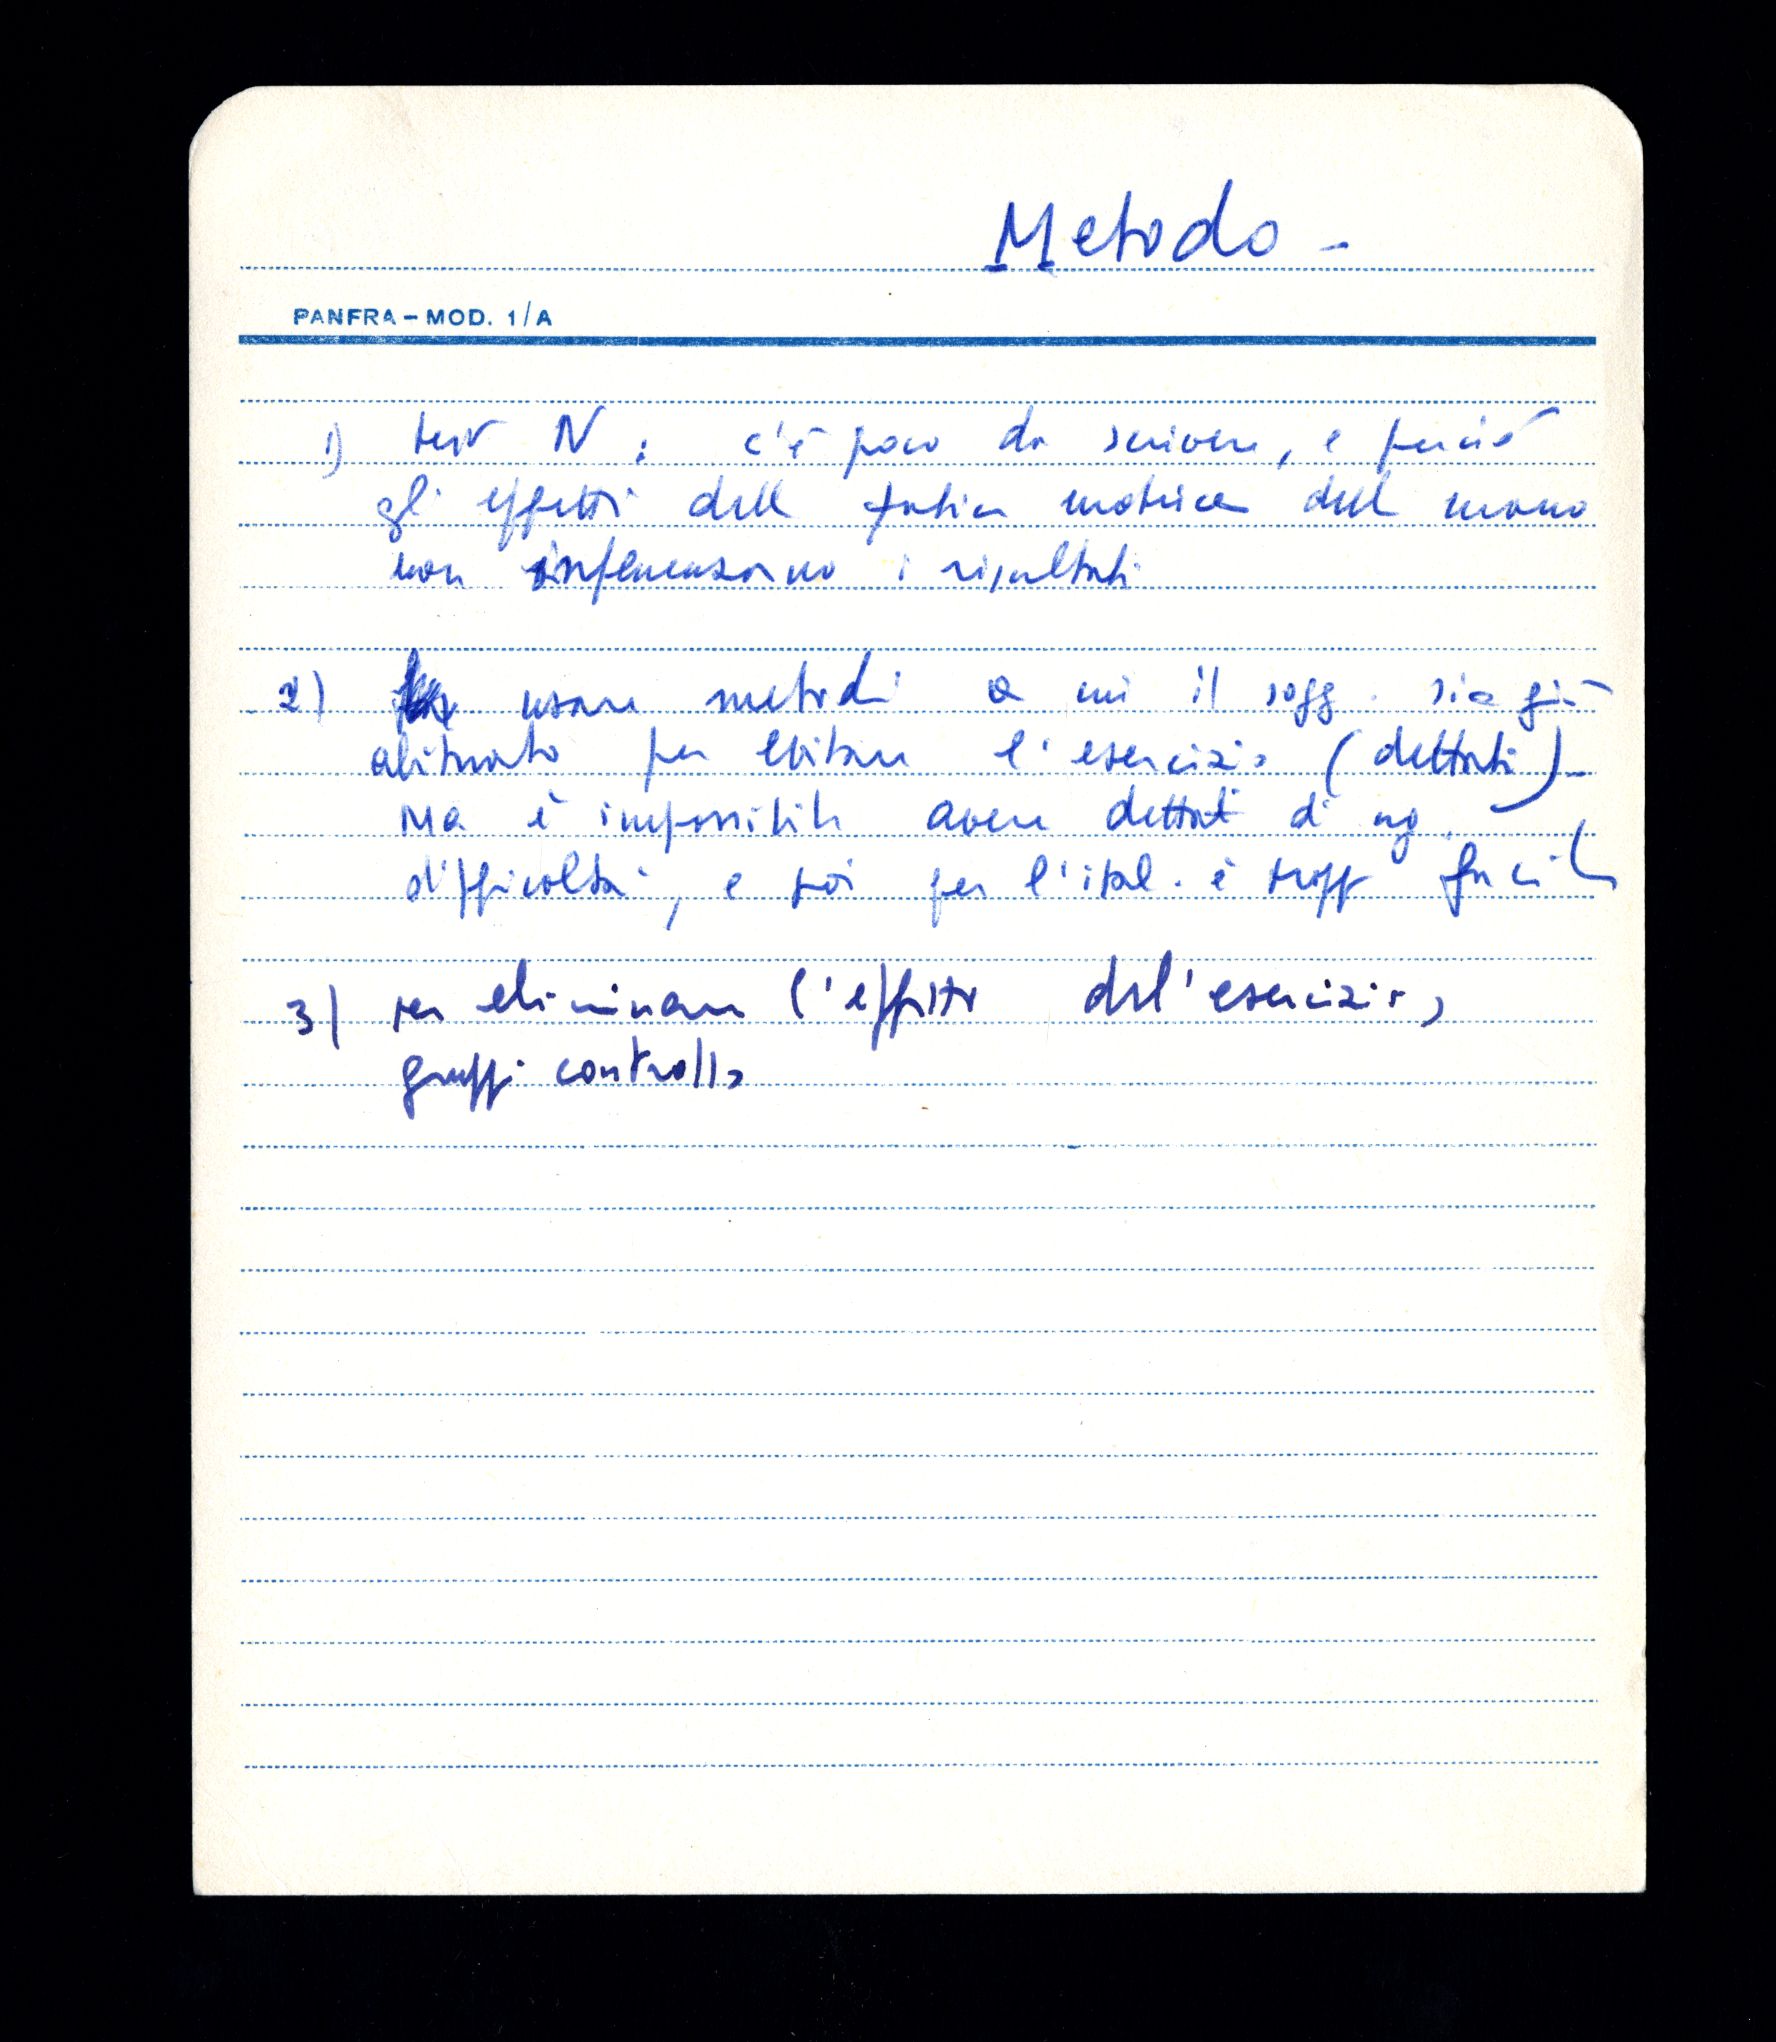 Metodo -
PANFRA - MOD. 1/A
1) test N : c'è poco da scrivere, e perciò
gli effetti della fatica motrice della mano
non influenzano i risultati
2) usare metodi a cui il sogg. sia già
abituato per evitare l'esercizio (dettati) -
Ma è impossibile avere dettati di ug.
difficoltà, e poi per l'ital. è tropp facile
3) per eliminare l'effetto dell'esercizio,
gruppi controllo